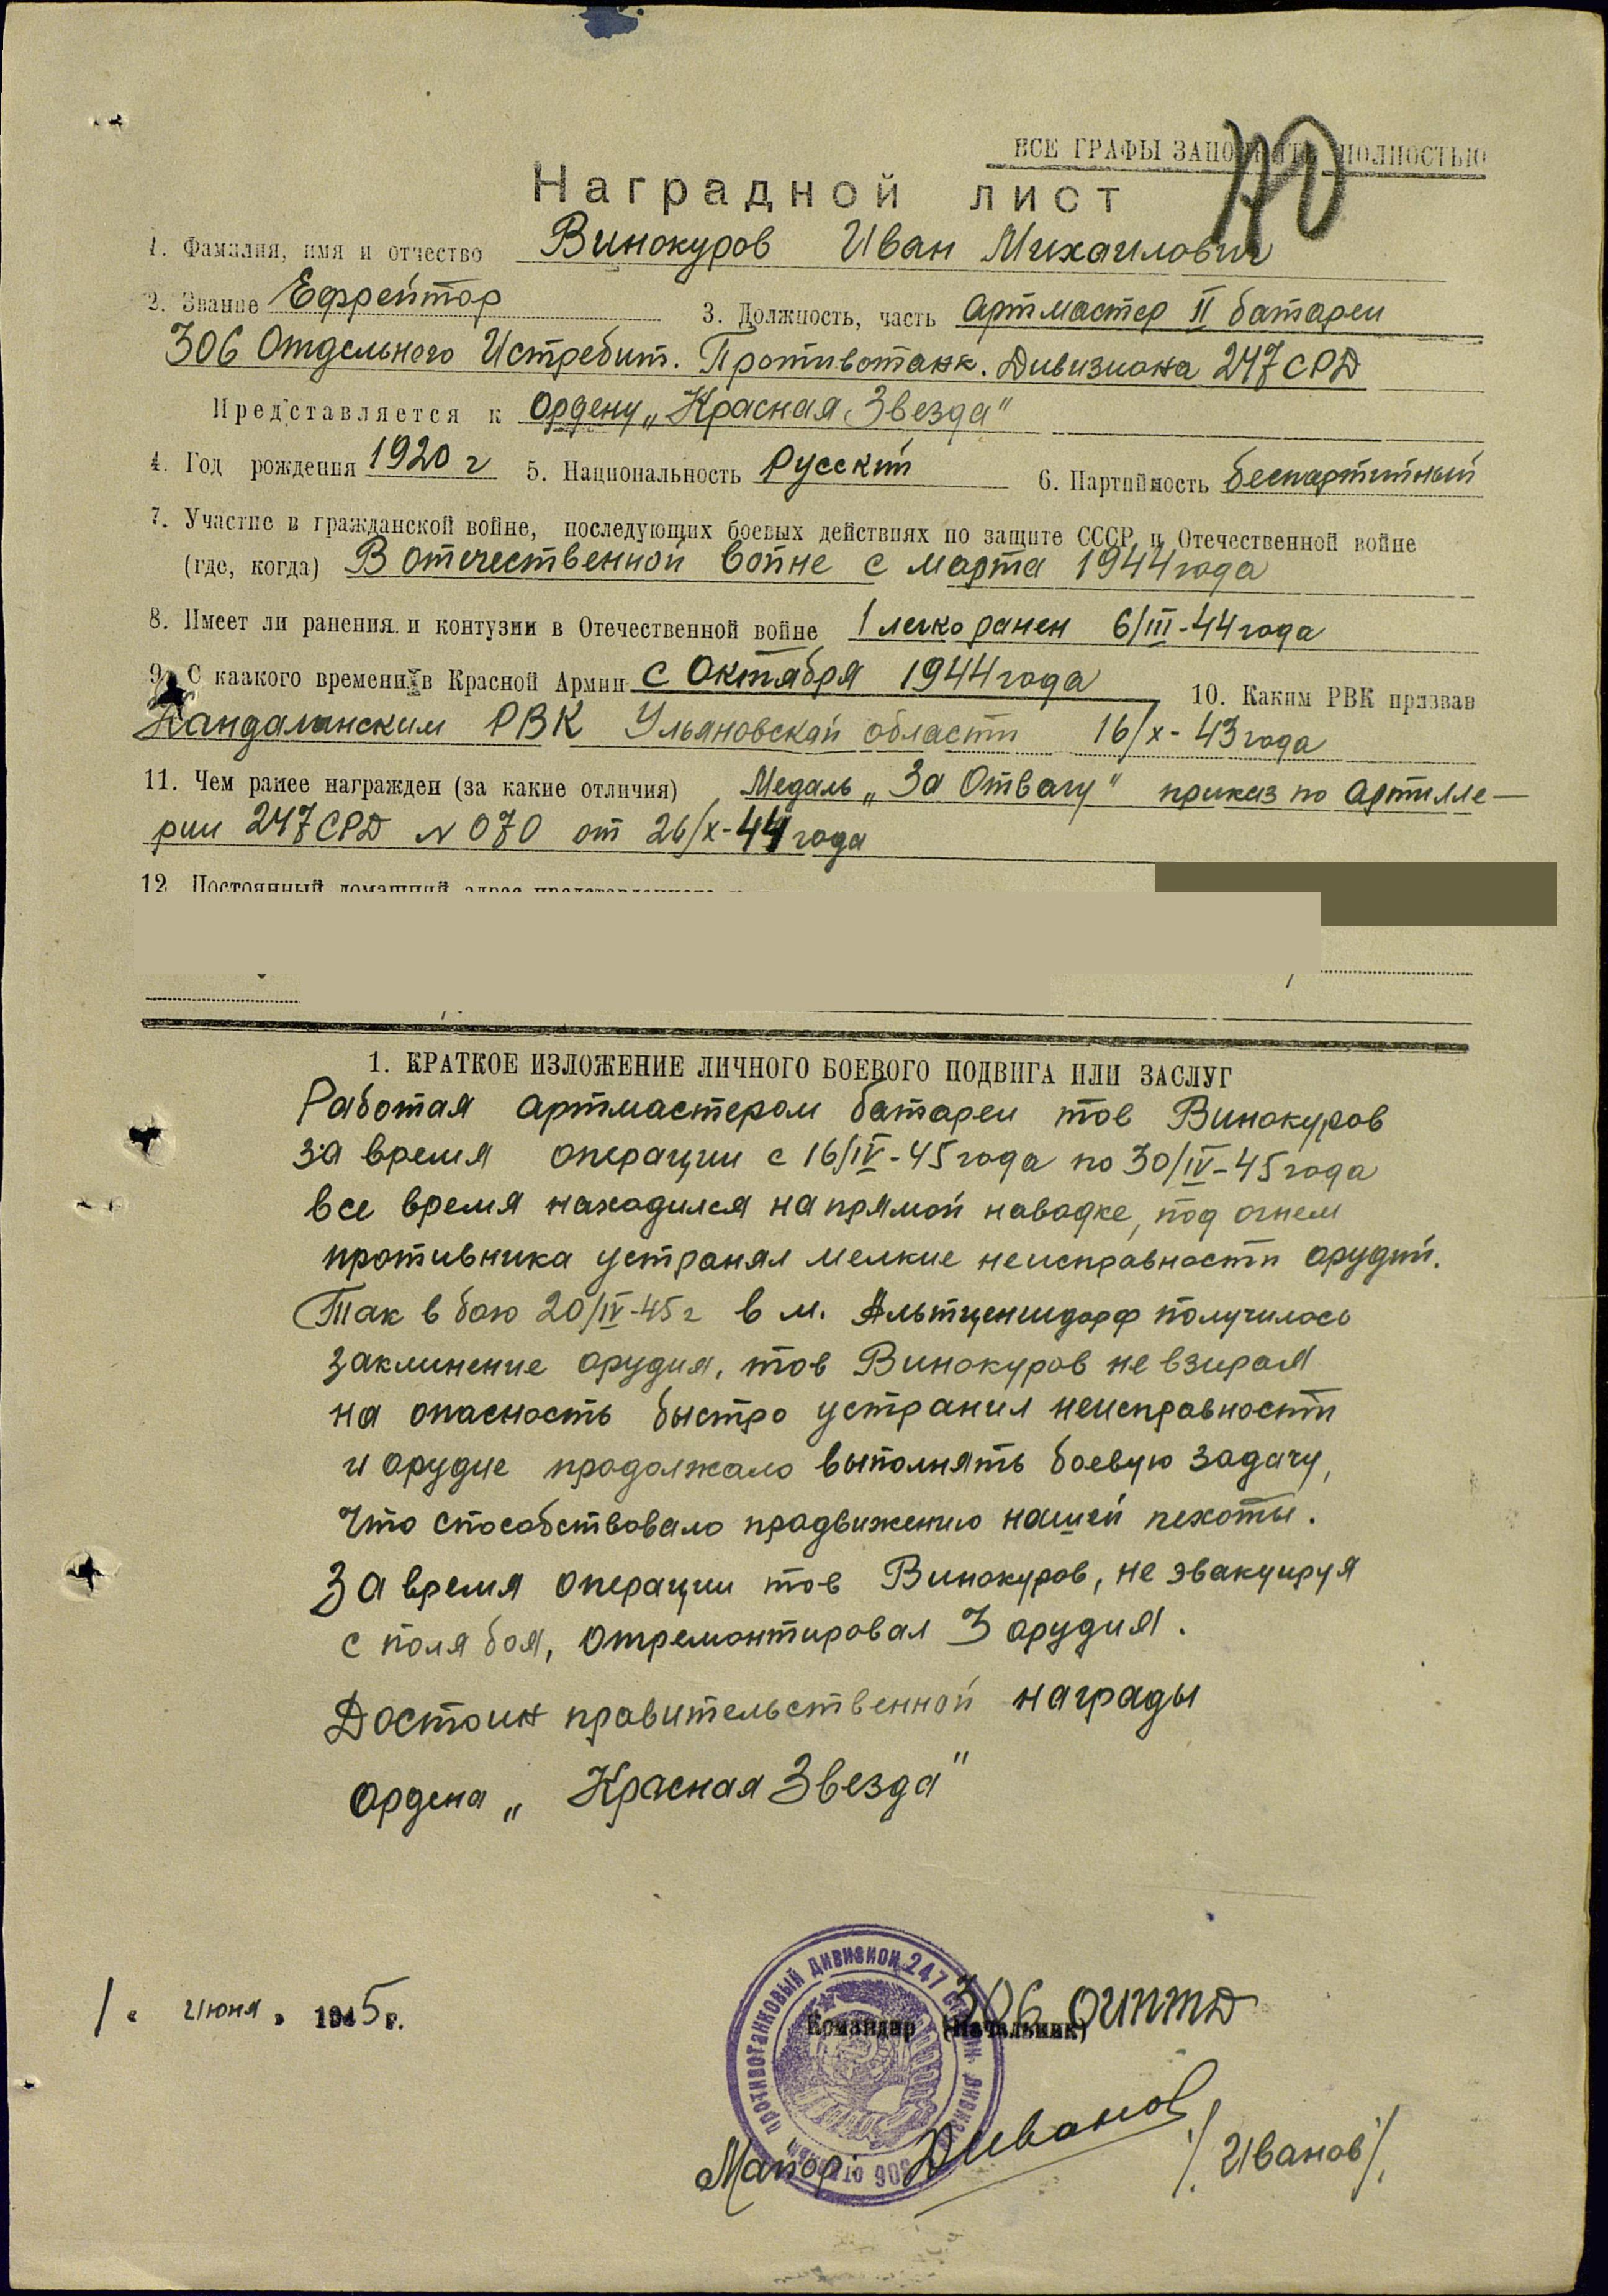 ВСЕ ГРАФЫ ЗАПОЛНЯТЬ ПОЛНОСТЬЮ
Наградной лист
1. Фамилия, имя и отчество Винокуров Иван Михаилович
2. Звание Ефрейтор 3. Должность, часть Артмастер II батареи
306 Отдельного Истребит. Противотанк. Дивизиона 247 СРД
Представляется к Ордену „Красная Звезда"
4. Год рождения 1920 г 5. Национальность Русский 6. Партийность беспартийный
7. Участие в гражданской войне, последующих боевых действиях по защите СССР и Отечественной войне
(где, когда) В отечественной войне с марта 1944 года
8. Имеет ли ранения и контузии в Отечественной войне 1 легко ранен 6/III-44 года
9. С каакого времени в Красной Армии с Октября 1944 года 10. Каким РВК призван
РВК Ульяновской области 16/X-43 года
11. Чем ранее награжден (за какие отличия) Медаль „За Отвагу" приказ по Артилле-
рии 247 СРД N 070 от 26/X-44 года
12. Постоянный домашний адрес
1. КРАТКОЕ ИЗЛОЖЕНИЕ ЛИЧНОГО БОЕВОГО ПОДВИГА ИЛИ ЗАСЛУГ
Работая артмастером батареи тов Винокуров
за время операции с 16/IV-45 года по 30/IV-45 года
все время находился на прямой наводке, под огнем
противника устранял мелкие неисправности орудий.
Так в бою 20/IV-45 г в м. Альтценшдорф получилось
заклинение орудия, тов Винокуров не взирая
на опасность быстро устранил неисправности
и орудие продолжало выполнять боевую задачу,
что способствовало продвижению нашей пехоты.
За время операции тов Винокуров, не эвакуируя
с поля боя, отремонтировал 3 орудия.
Достоин правительственной награды
ордена „Красная Звезда"
1 „ июня „ 1945 г.
306 ОИПТД
Командир (Начальник)
306 отдельный противотанковый дивизион 247 стрелк. дивизии
Майор Иванов /Иванов/